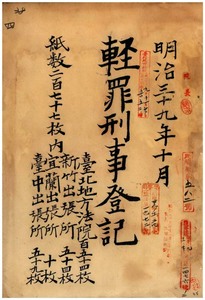 明治卅九年十月
軽罪刑事登記
臺北地方法院百五十四枚
新竹出張所五十四枚
紙数二百七十七枚内宜蘭出張所十枚
臺中出張所五十九枚